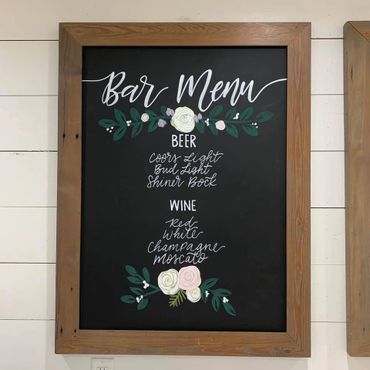 Bar Menu
BEER
Coors Light
Bud Light
Shiner Bock
WINE
Red
White
Champagne
Moscato